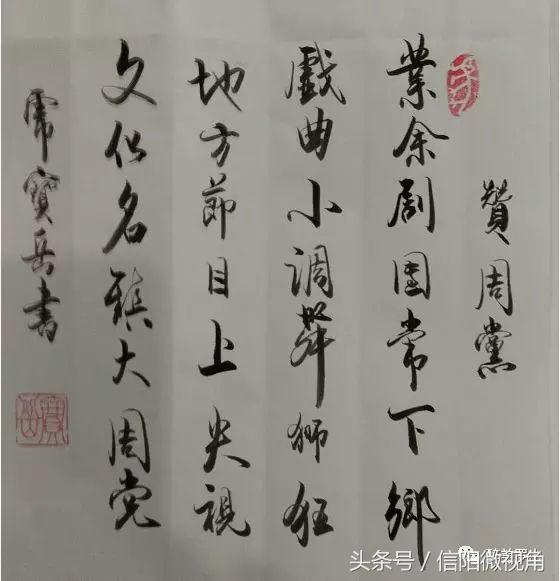 贊周黨
業余剧团常下鄉
戲曲小調舞狮狂
地方節目上央視
文化名鎮大周党
寶岳書
头条号 / 信阳微视角